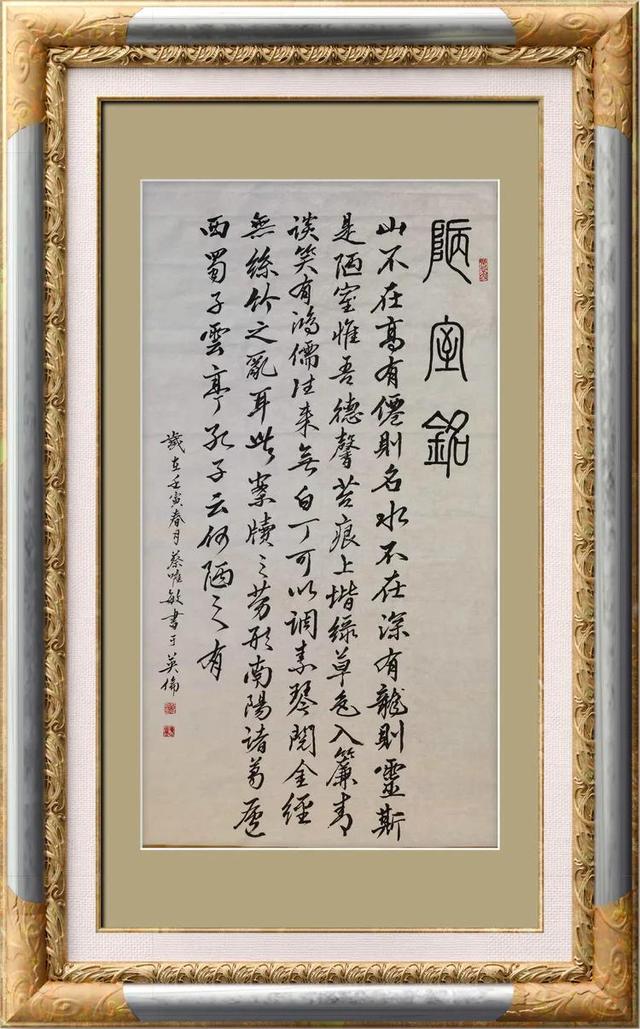 陋室銘
山不在高有僊則名水不在深有龍則靈斯
是陋室惟吾德馨苔痕上堦綠草色入簾青
談笑有鴻儒往來無白丁可以調素琴閱金經
無絲竹之亂耳無案牘之勞形南陽諸葛廬
西蜀子雲亭孔子云何陋之有
歲在壬寅春月蔡唯敏書于英倫